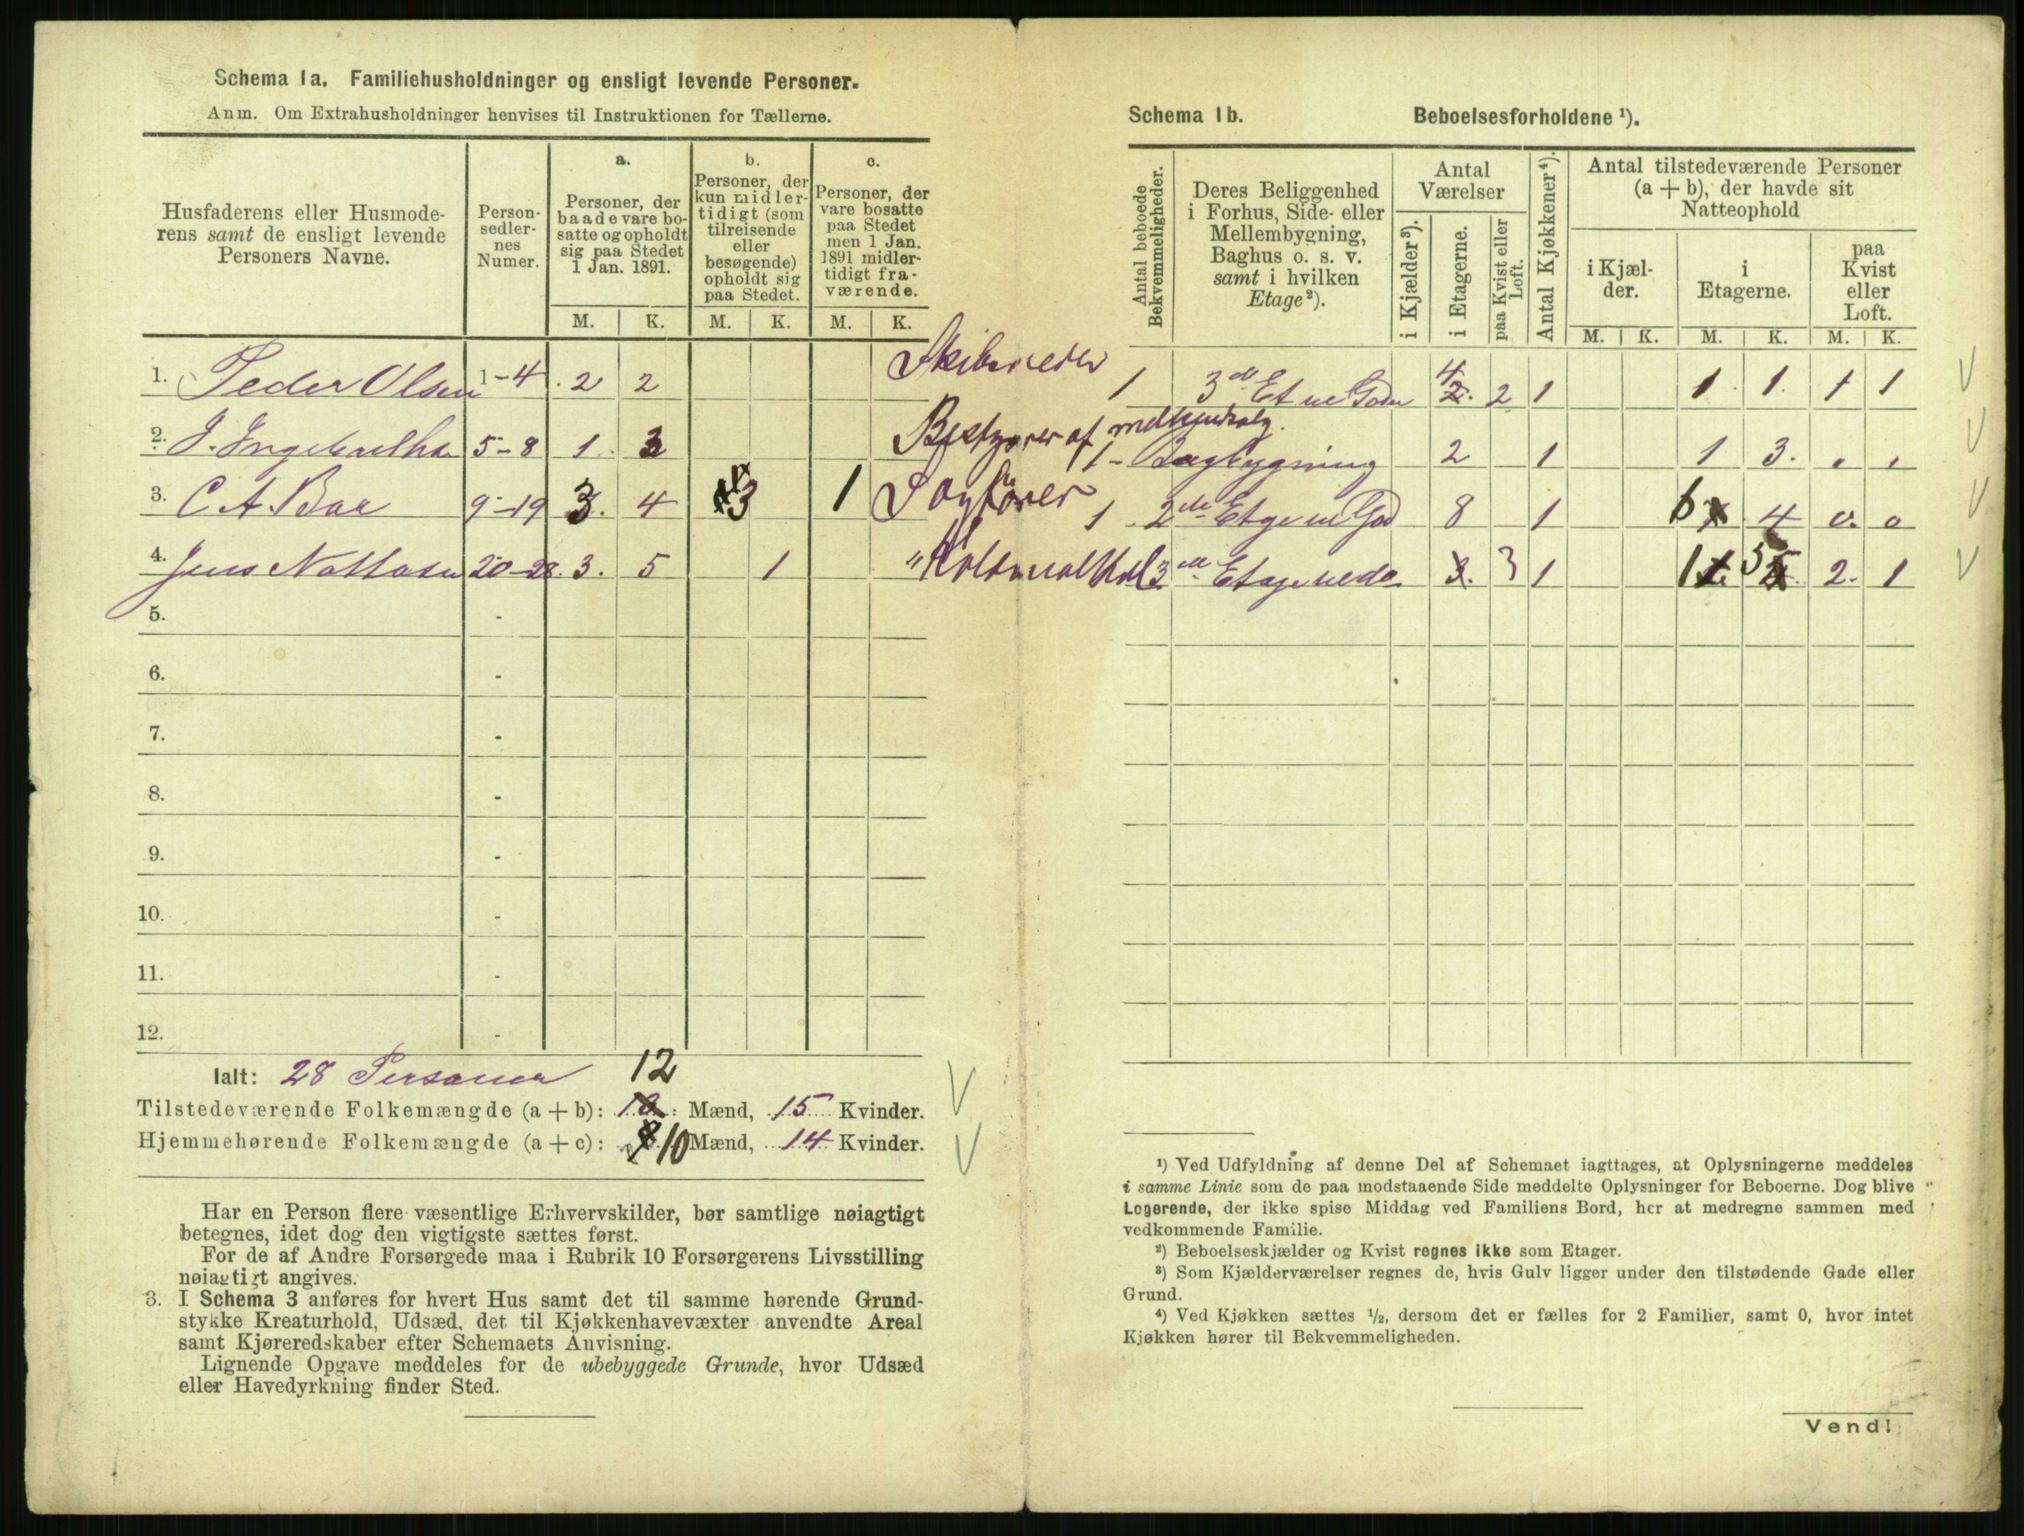 Schema 1a. Familiehusholdninger og ensligt levende Personer.
Anm. Om Extrahusholdninger henvises til Instruktionen for Tællerne.
Husfaderens eller Husmode-
rens samt de ensligt levende
Personers Navne.
Person-
sedler-
nes
Numer.
a.
Personer, der
baade vare bo-
satte og opholdt
sig paa Stedet
1 Jan. 1891.
b.
Personer, der
kun midler-
tidigt (som
tilreisende
eller
besøgende)
opholdt sig
paa Stedet.
c.
Personer, der
vare bosatte
paa Stedet
men 1 Jan.
1891 midler-
tidigt fra-
værende.
M. K. M. K. M. K.
1. Peder Olsen 1-4 2 2
2. J. 5-8 1 3
3. C A. Bae 9-19 3. 4 3 1
4. Jens 20-28. 3. 5 1
5. -
6. -
7. -
8. -
9. -
10. -
11. -
12. -
Ialt: 28 Personer 12
Tilstedeværende Folkemængde (a + b): 10 Mænd, 15 Kvinder.
Hjemmehørende Folkemængde (a + c): 10 Mænd, 14 Kvinder.
Har en Person flere væsentlige Erhvervskilder, bør samtlige nøiagtigt
betegnes, idet dog den vigtigste sættes først.
For de af Andre Forsørgede maa i Rubrik 10 Forsørgerens Livsstilling
nøiagtigt angives.
3. I Schema 3 anføres for hvert Hus samt det til samme hørende Grund-
stykke Kreaturhold, Udsæd, det til Kjøkkenhavevæxter anvendte Areal
samt Kjøreredskaber efter Schemaets Anvisning.
Lignende Opgave meddeles for de ubebyggede Grunde, hvor Udsæd
eller Havedyrkning finder Sted.
Schema 1b. Beboelsesforholdene ¹).
Antal beboede
Bekvemmeligheder.
Deres Beliggenhed
i Forhus, Side- eller
Mellembygning,
Baghus o. s. v.
samt i hvilken
Etage²).
Antal
Værelser
i Kjælder³).
i Etagerne.
paa Kvist eller
Loft.
Antal Kjøkkener⁴).
Antal tilstedeværende Personer
(a + b), der havde sit
Natteophold
i Kjæl-
der.
i
Etagerne.
paa
Kvist
eller
Loft.
M. K. M. K. M. K.
1 3 4 2 1 1. 1. 1 1
Bestyrer af
1 - Bagbygning 2 1 1 3.
Sagfører
1 2 8 1 6 4 0. 0
3 3 1 1 5 2. 1
¹) Ved Udfyldning af denne Del af Schemaet iagttages, at Oplysningerne meddeles
i samme Linie som de paa modstaaende Side meddelte Oplysninger for Beboerne. Dog blive
Logerende, der ikke spise Middag ved Familiens Bord, her at medregne sammen med
vedkommende Familie.
²) Beboelseskjælder og Kvist regnes ikke som Etager.
³) Som Kjælderværelser regnes de, hvis Gulv ligger under den tilstødende Gade eller
Grund.
⁴) Ved Kjøkken sættes ½, dersom det er fælles for 2 Familier, samt 0, hvor intet
Kjøkken hører til Bekvemmeligheden.
Vend!